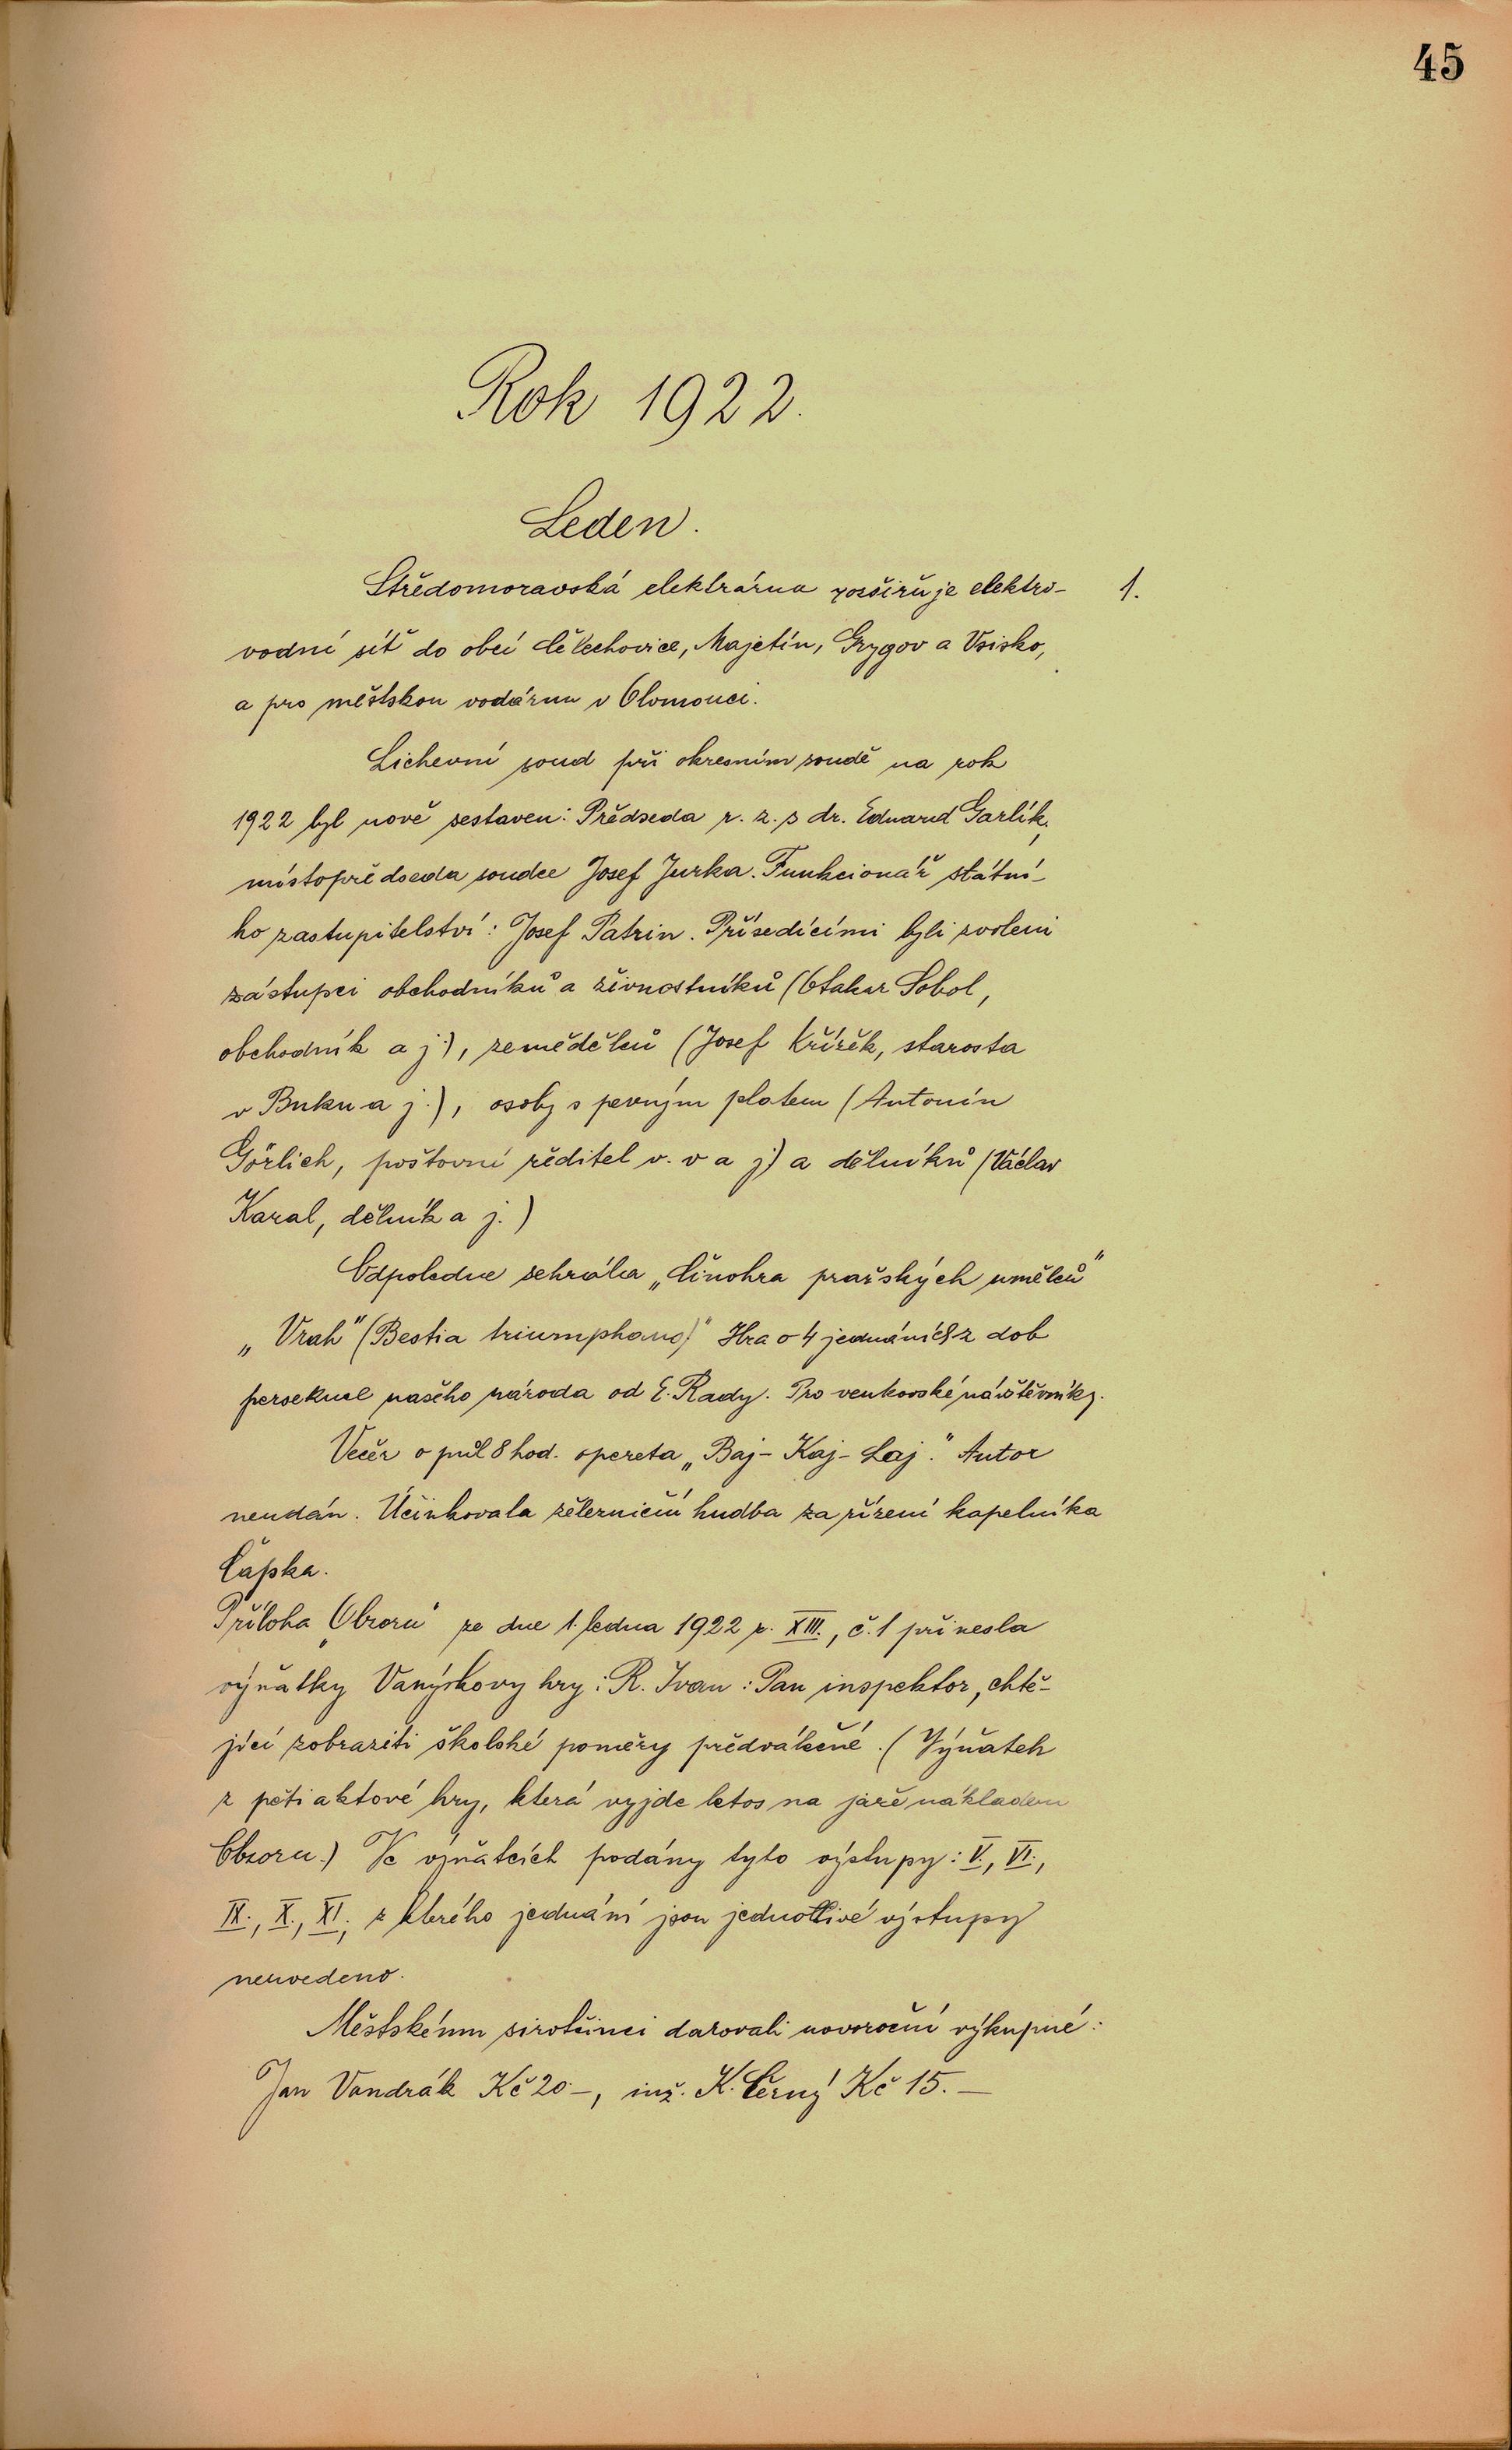 45
Rok 1922.
Leden.
Středomoravská elektrárna rozšiřuje elektro- 1.
vodní síť do obcí Čělechovice, Majetín, Grygov a Vsisko,
a pro městskou vodárnu v Olomouci.
Lichevní soud při okresním soudě na rok
1922 byl nově sestaven: Předseda r. z. s dr. Eduard Garlík,
místopředseda soudce Josef Jurka. Funkcionář státní-
ho zastupitelství: Josef Patrin. Přísedícími byli zvoleni
zástupci obchodníků a živnostníků (Otakar Sobol,
obchodník a j.), zemědělců (Josef Křížek, starosta
v Buku a j.), osoby s pevným platem (Antonín
Görlich, poštovní ředitel v. v a j) a dělníků (Václav
Karal, dělník a j.)
Odpoledne sehrála „Činohra pražských umělců"
„Vrah" (Bestia triumphans)" Hra o 4 jednáních z dob
persekuce našeho národa od E. Rady. Pro venkovské návštěvníky.
Večer o půl 8 hod. opereta „Baj-Kaj-Laj." Autor
neudán. Účinkovala železniční hudba za řízení kapelníka
Čápka.
Příloha „Obzoru" ze dne 1. ledna 1922 r. XIII., č. 1 přinesla
výňatky Vanýskovy hry: R. Ivan: Pan inspektor, chtě-
jící zobraziti školské poměry předválečné. (Výňatek
z pěti aktové hry, která vyjde letos na jaře nákladem
Obzoru.) Ve výňatcích podány tyto výstupy: V., VI.,
IX., X., XI.; z kterého jednání jsou jednotlivé výstupy
neuvedeno.
Městskému sirotčinci darovali novoroční výkupné:
Jan Vandrák Kč 20.–, inž. K. Černý Kč 15.–